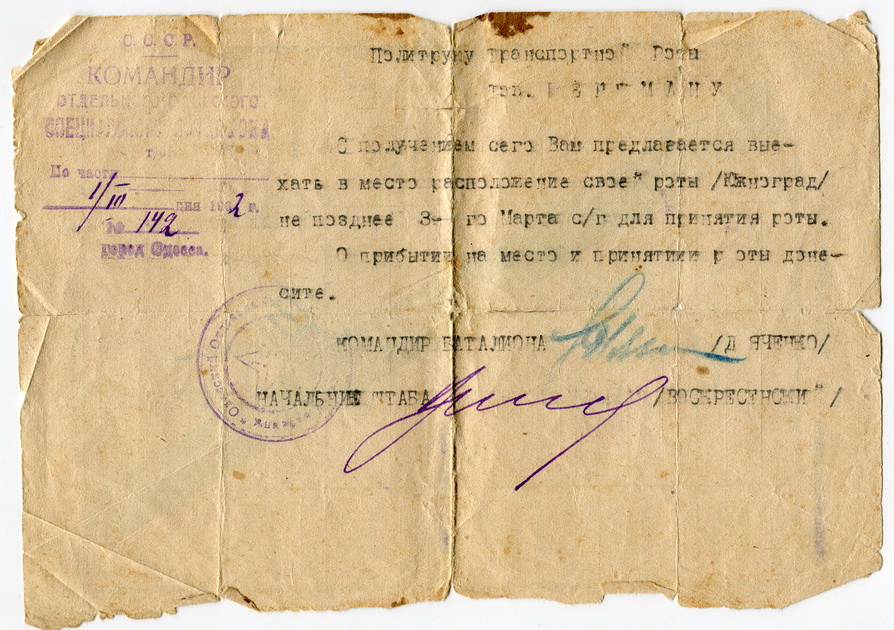 С. С. С. Р.
КОМАНДИР
По части
1/III дня 1932 г.
№ 142
город Одесса.
Политруку транспортно" Роты
тов.
С получением сего Вам предлагается вые-
хать в место расположение свое" роты /Южноград/
не позднее 3- го Марта с/г для принятия роты.
О прибытии на место и принятиии р оты доне-
сите.
КОМАНДИР БАТАЛИОНА /Д ЯЧЕНКО/
НАЧАЛЬНИК ШТАБА /ВОСКРЕСЕНСКИ" /